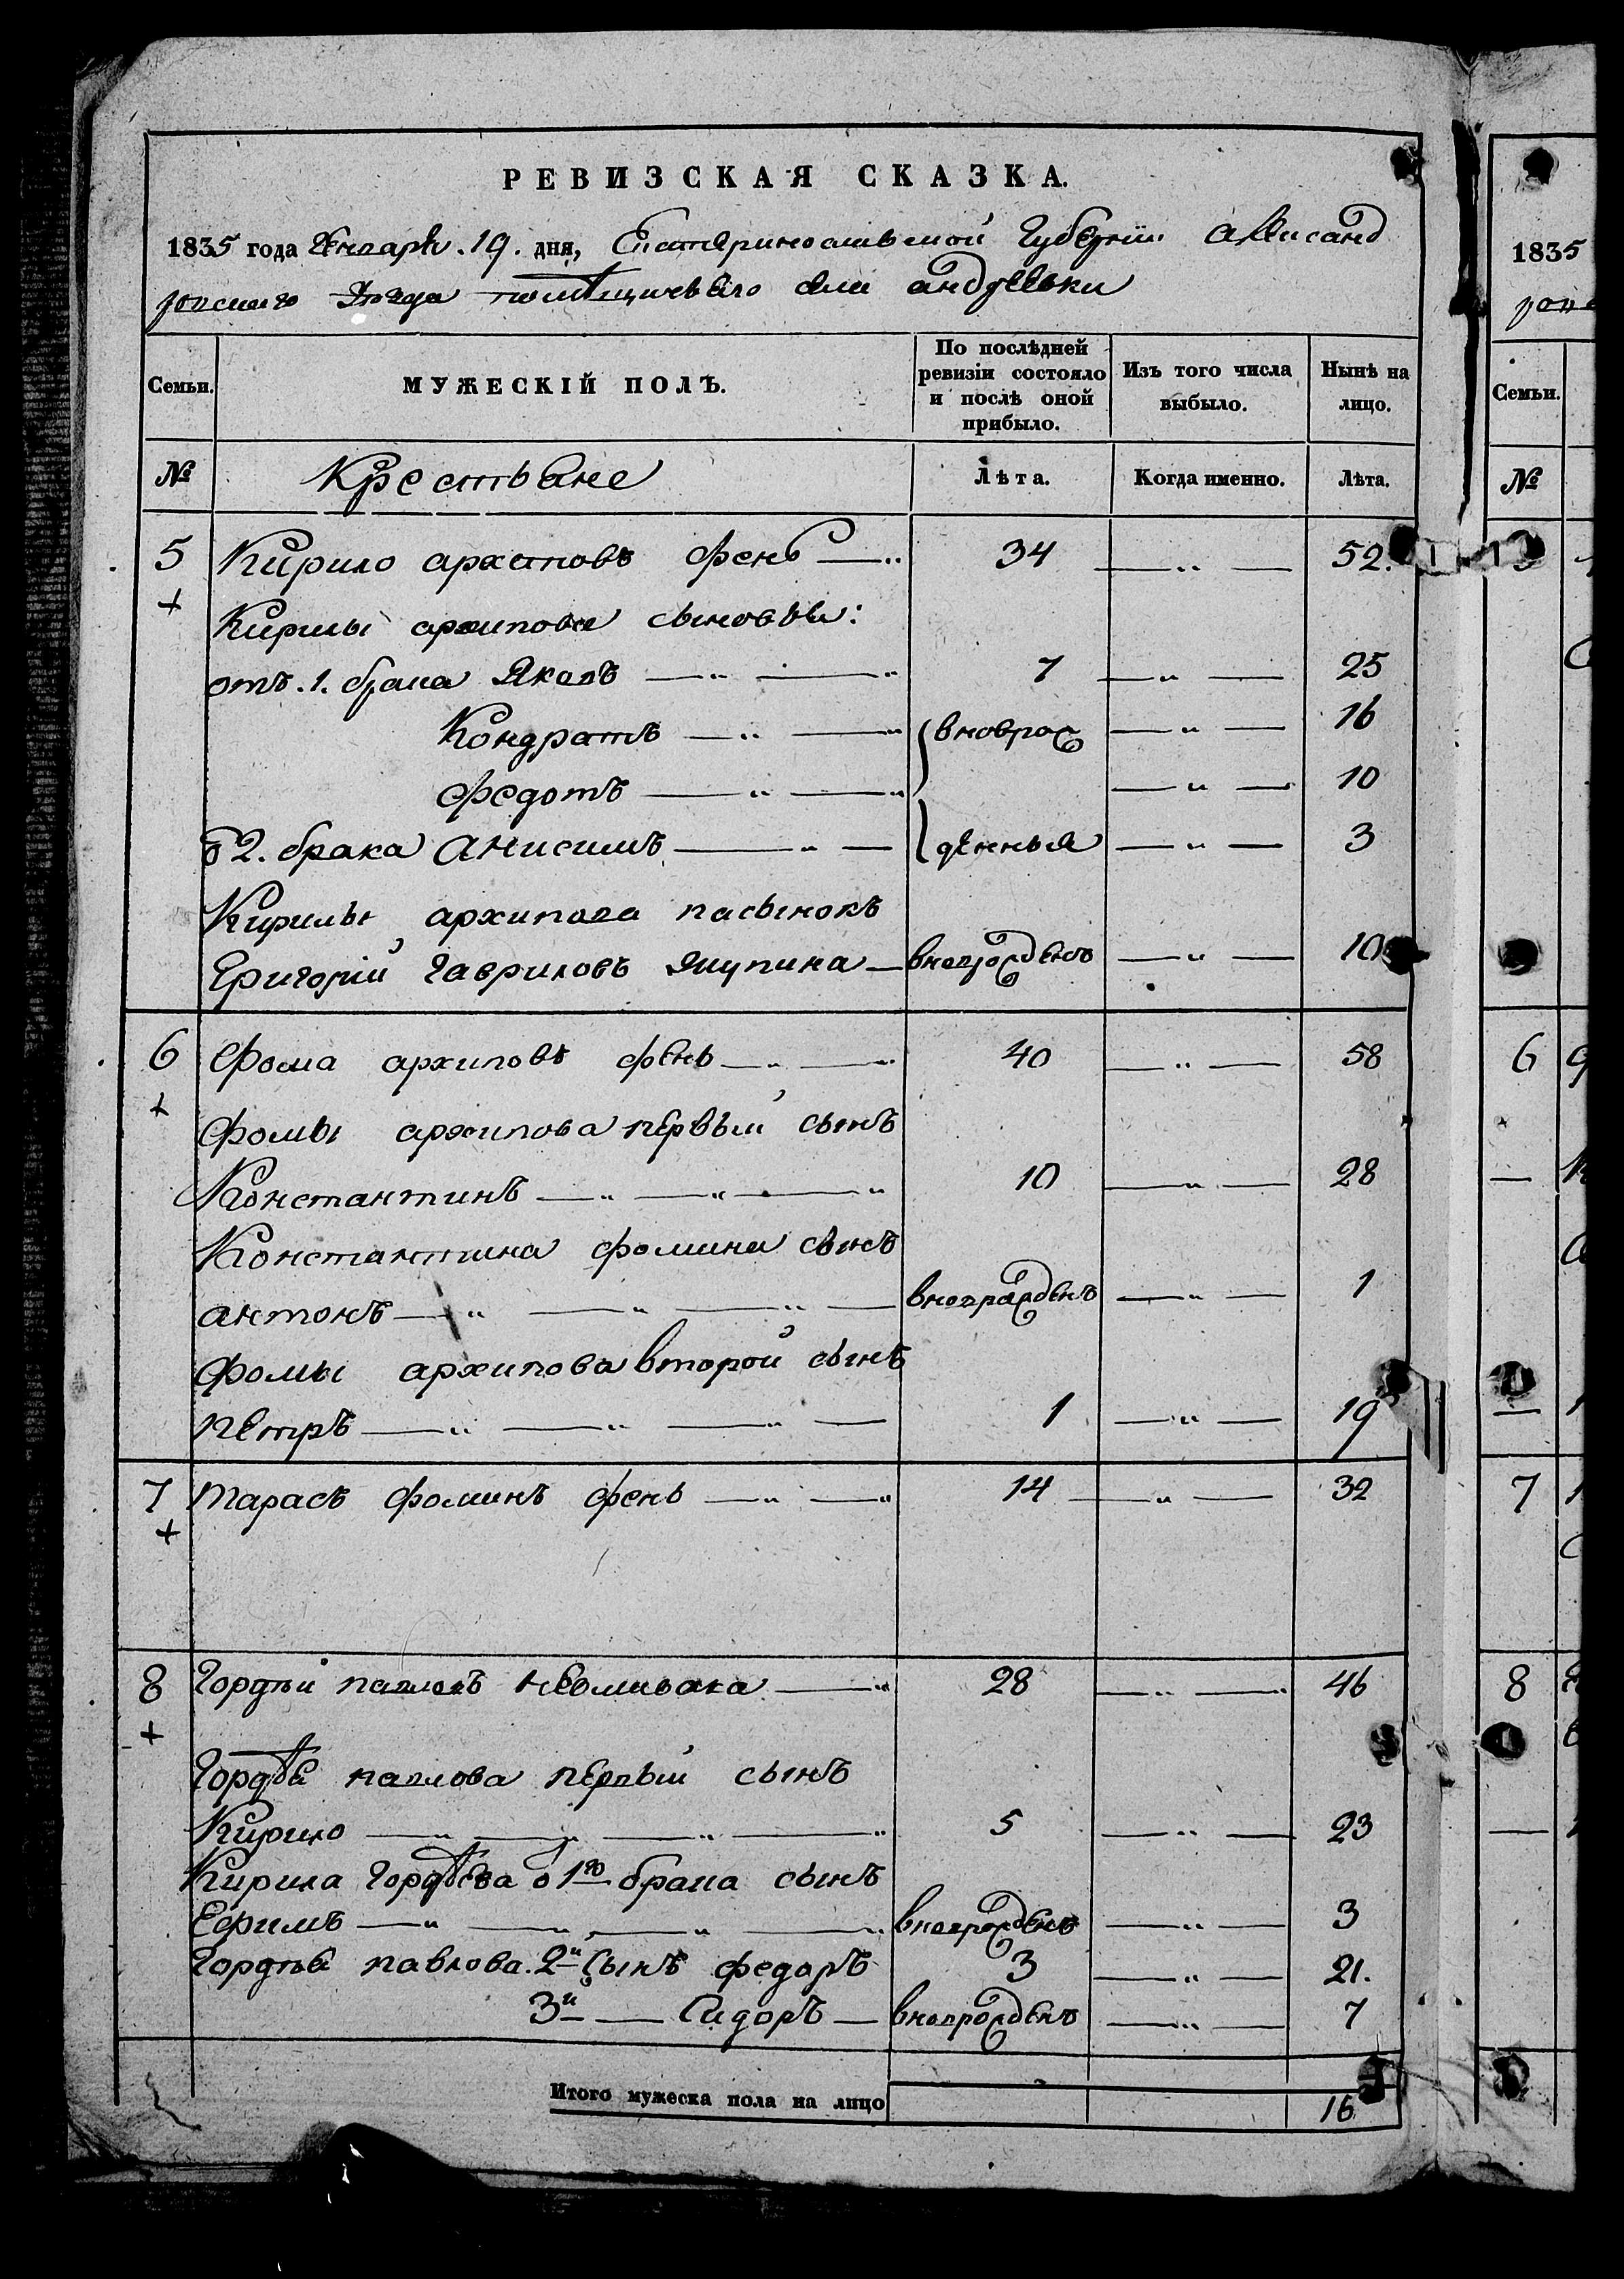 РЕВИЗСКАЯ СКАЗКА.
1835 года Генваря. 19. дня, Екатеринославской Губернии Александ
ровскаго Уѣзда помѣщичьяго села андреевки
Семьи. МУЖЕСКІЙ ПОЛЪ. По послѣдней ревизіи состояло и послѣ оной прибыло. Изъ того числа выбыло. Нынѣ на лицо.
№ Крестьяне Лѣта. Когда именно. Лѣта.
5 Кирило архиповъ фень — „ 34 — „ — 52.
+
Кирилы архипова сыновья:
отъ. 1. брака Яковъ — „ — „ 7 — „ — 25
Кондратъ — „ — „ вновро — „ — 16
Федотъ — „ — „ — „ — 10
о 2. брака Анисимъ — „ — жденныя — „ — 3
Кирилы архипова пасынокъ
Григорій Гавриловъ — вноврожденъ — „ — 10
6 Фома архиповъ фень — „ — „ 40 — „ — 58
+
Фомы архипова первый сынъ
Константинъ — „ — „ — „ 10 — „ — 28
Константина фомина сынъ
антонъ — „ — „ — „ — вноврожденъ — „ — 1
Фомы архипова второй сынъ
петръ — „ — „ — „ — 1 — „ — 19
7 Тарасъ фоминъ фень — „ — „ 14 — „ — 32
+
8 Гордѣй павловъ — „ 28 — „ — 46
+
Гордѣя павлова первый сынъ
Кирило — „ — „ — „ — „ 5 — „ — 23
Кирила Гордѣева о 1го брака сынъ
Ефимъ — „ — „ — „ — „ вноврожденъ — „ — 3
Гордѣя павлова. 2й сынъ федоръ 3 — „ — 21.
3й — Сидоръ — вноврожденъ — „ — 7
Итого мужеска пола на лицо 16
1835
Семьи.
№
6
7
8